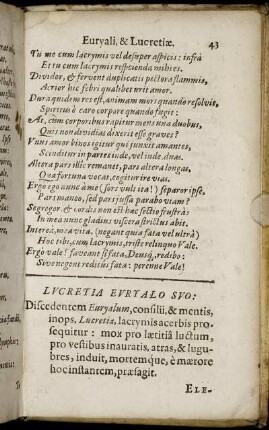 Euryali, & Lucretiæ. 43
Tu me cum lacrymis vel desuper aspicis: infrà
Et tu cum lacrymis respicienda mihi es.
Dividor, & fervent duplicatis pectora flammis,
Acrior hic febri qualibet urit amor.
Dura quidem res est, animam mori quando resolvis,
Spiritus è caro corpore quando fugit:
At, cùm corporibus rapitur mens una duobus,
Quis non dividias dixerit esse graves?
Vnus amor binos igitur qui junxit amantes,
Scinditur in partes inde, vel inde, duas.
Altera pars illìc remanet, pars altera longas,
Qua fortuna vocat, cogitur ire vias.
Ergo ego nunc à me (fors vult ita!) separor ipse,
Pars manso, sed pars jussa parabo viam?
Segregor & cordis non est hac sectio frustrà:
In mea nunc gladius viscera strictus abit.
Interea, mea vita, (negant quia fata vel ultrà)
Hoc tibi, cum lacrymis, triste relinquo Vale.
Ergò vale! faveant si fata, Deusq́, redibo:
Sive negent reditus fata: perenne Vale!
LVCRETIA EVRYALO SVO:
Discedentem Euryalum, consilii, & mentis,
inops, Lucretia, lacrymis acerbis pro-
sequitur: mox pro lætitiâ luctum,
pro vestibus inauratis, atras, & lugu-
bres, induit, mortemque, è mærore
hoc instantem, præsagit.
ELE-